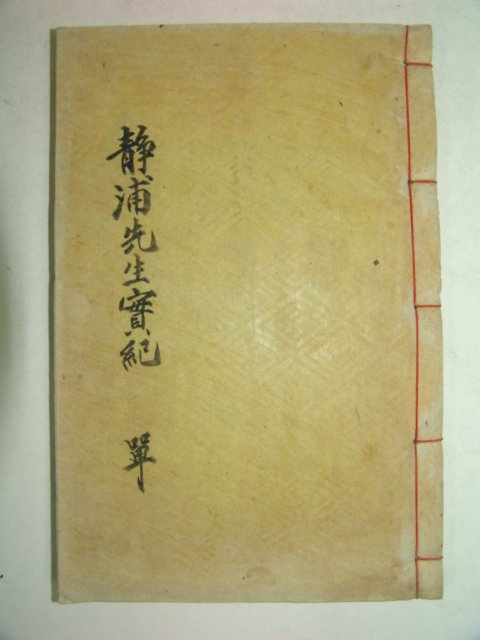 静浦先生實紀
單